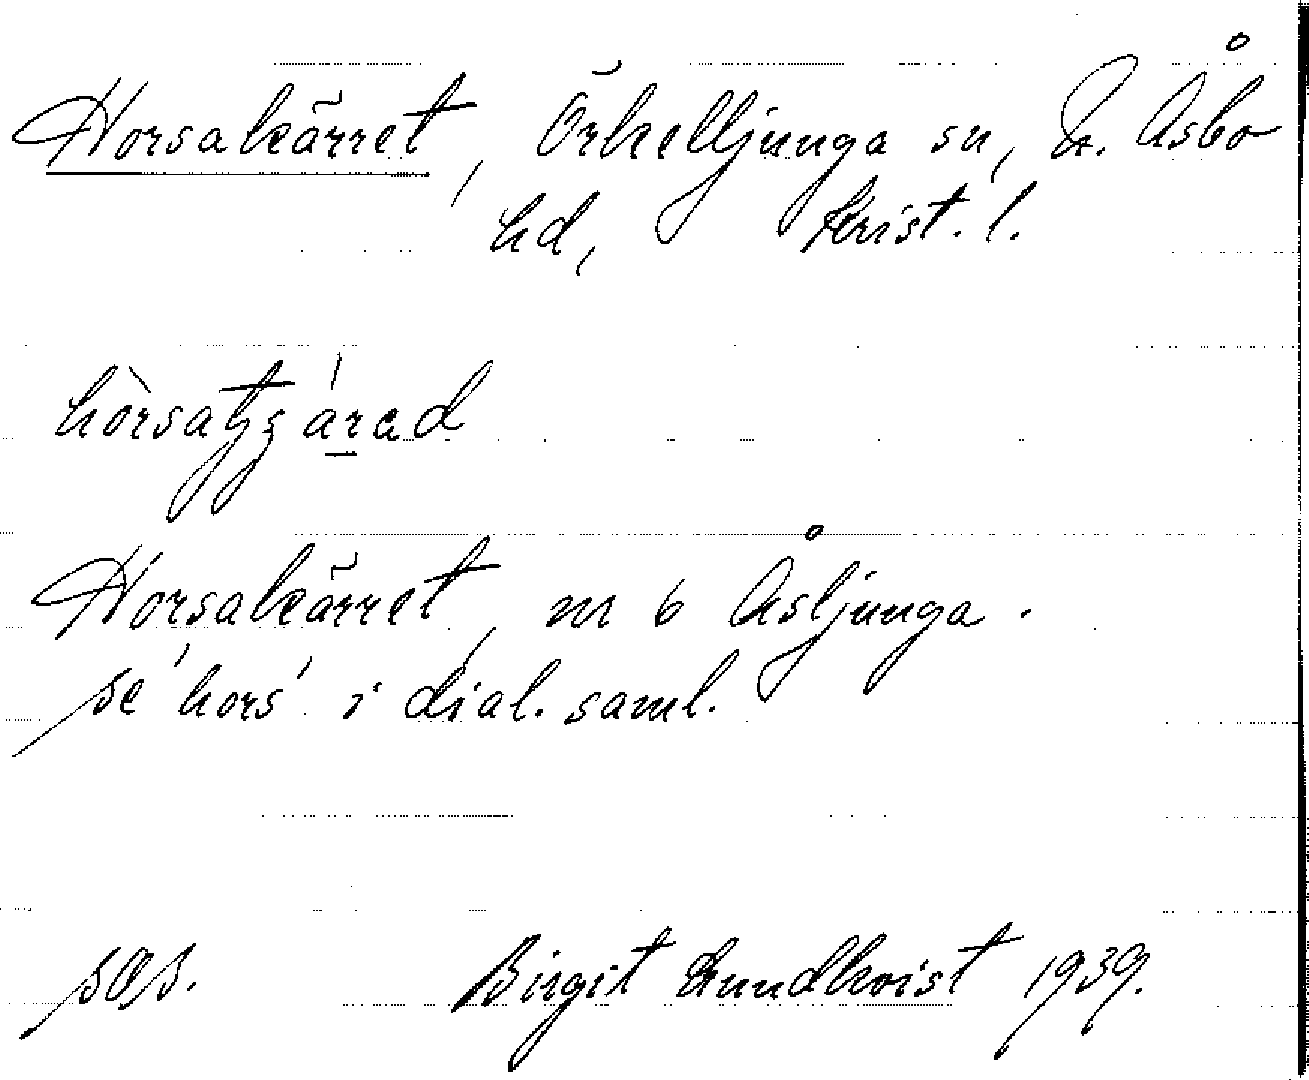 Horsakärret, Örkelljunga sn, N. Åsbo
hd, Krist. l.
Horsakärret, nr 6 Åsljunga.
se 'hors' i dial. saml.
Birgit Lundkvist 1939.